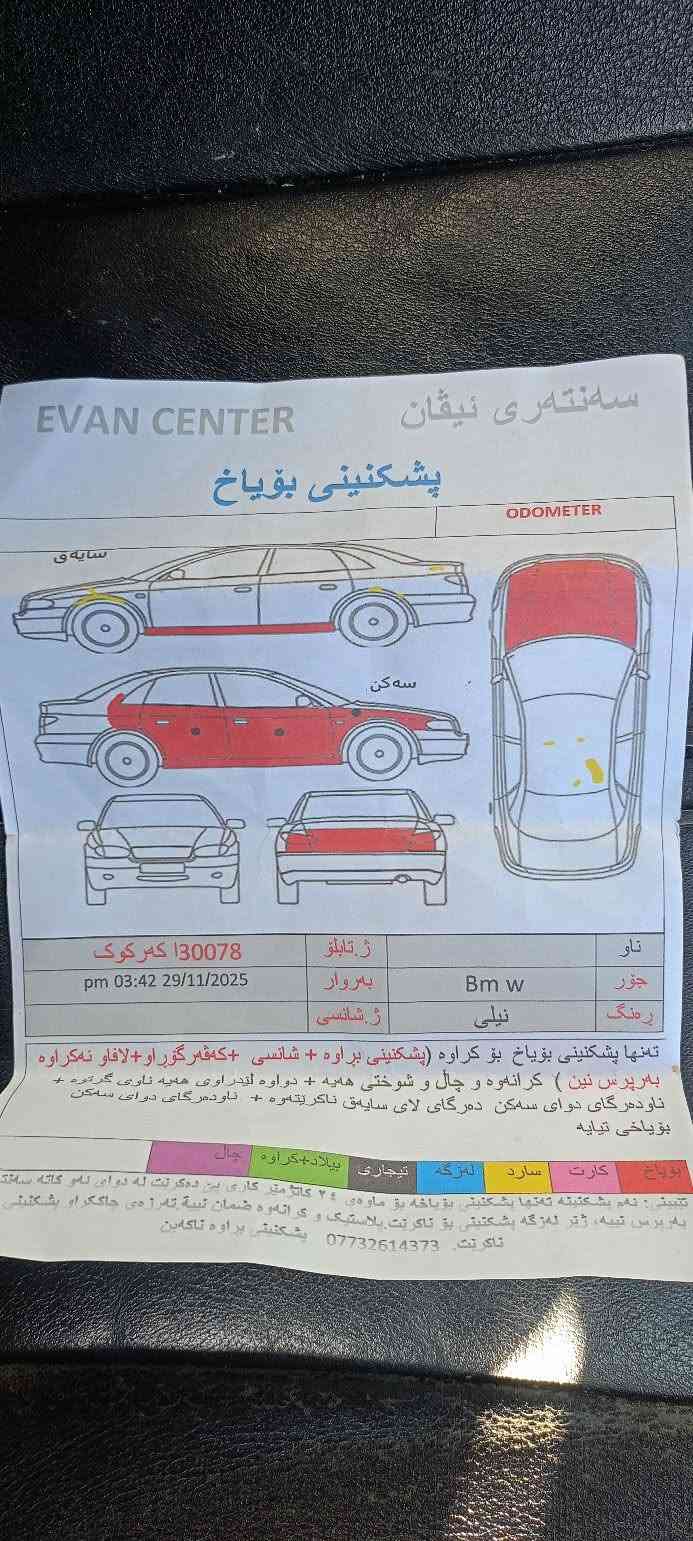 EVAN CENTER سەنتەری ئیڤان
پشکنینی بۆیاخ
ODOMETER
سایەق
سەکن
ناو ژ.تابلۆ 30078ا کەرکوک
جۆر Bm w بەروار 29/11/2025 03:42 pm
ڕەنگ نیلی ژ.شانسی
تەنها پشکنینی بۆیاخ بۆ کراوە (پشکنینی براوە + شانسی +کەڤەرگۆڕاو+لافاو نەکراوە
بەرپرس نین ) کرانەوە و چاڵ و شوختی هەیە + دواوە لێدراوی هەیە ناوی گرتوە +
ناودەرگای دوای سەکن دەرگای لای سایەق ناکرێتەوە + ناودەرگای دوای سەکن
بۆیاخی تیایە
بۆیاخ کارت سارد لەزگە تیجاری بیلاد+کراوە چاڵ
تێبینی: ئەم پشکنینە تەنها پشکنینی بۆیاخە بۆ ماوەی ٢٤ کاتژمێر کاری پێ دەکرێت لە دوای ئەو کاتە سەنتە
بەرپرس نییە، ژێر لەزگە پشکنینی بۆ ناکرێت.پلاستیک و کرانەوە ضمان نییە پشکنینی
ناکرێت. 07732614373 پشکنینی براوە ناکەین